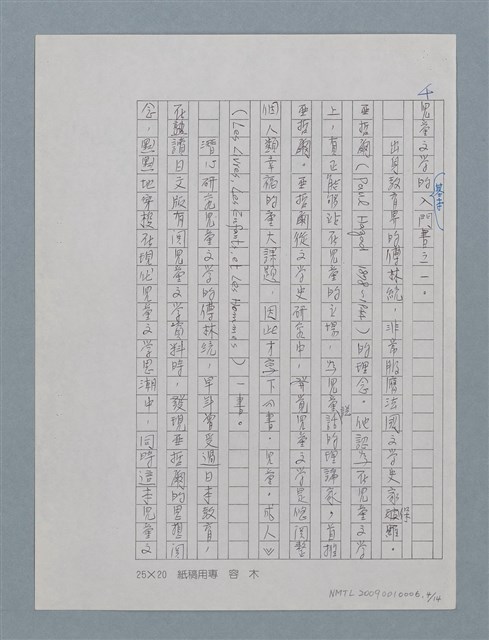 4
兒童文學的基本入門書之一。
出身教育界的傅林統，非常服膺法國文學史家保羅．
亞哲爾（Paul Hazard 1878~1944）的理念。他認為在兒童文學
上，真正能夠站在兒童的立場，為兒童說話的理論家，首推
亞哲爾。亞哲爾從文學史研究中，發覺兒童文學是攸關整
個人類幸福的重大課題，因此才寫下《書．兒童．成人》
（Les Livres Les Enfants et Les Hommes）一書。
潛心研究兒童文學的傅林統，早年曾受過日本教育，
在閱讀日文版有關兒童文學資料時，發現亞哲爾的思想閃
念，點點地穿梭在現代兒童文學思潮中，同時這本兒童文
25×20 紙稿用專 容 木
NMTL 20090010006. 4/14